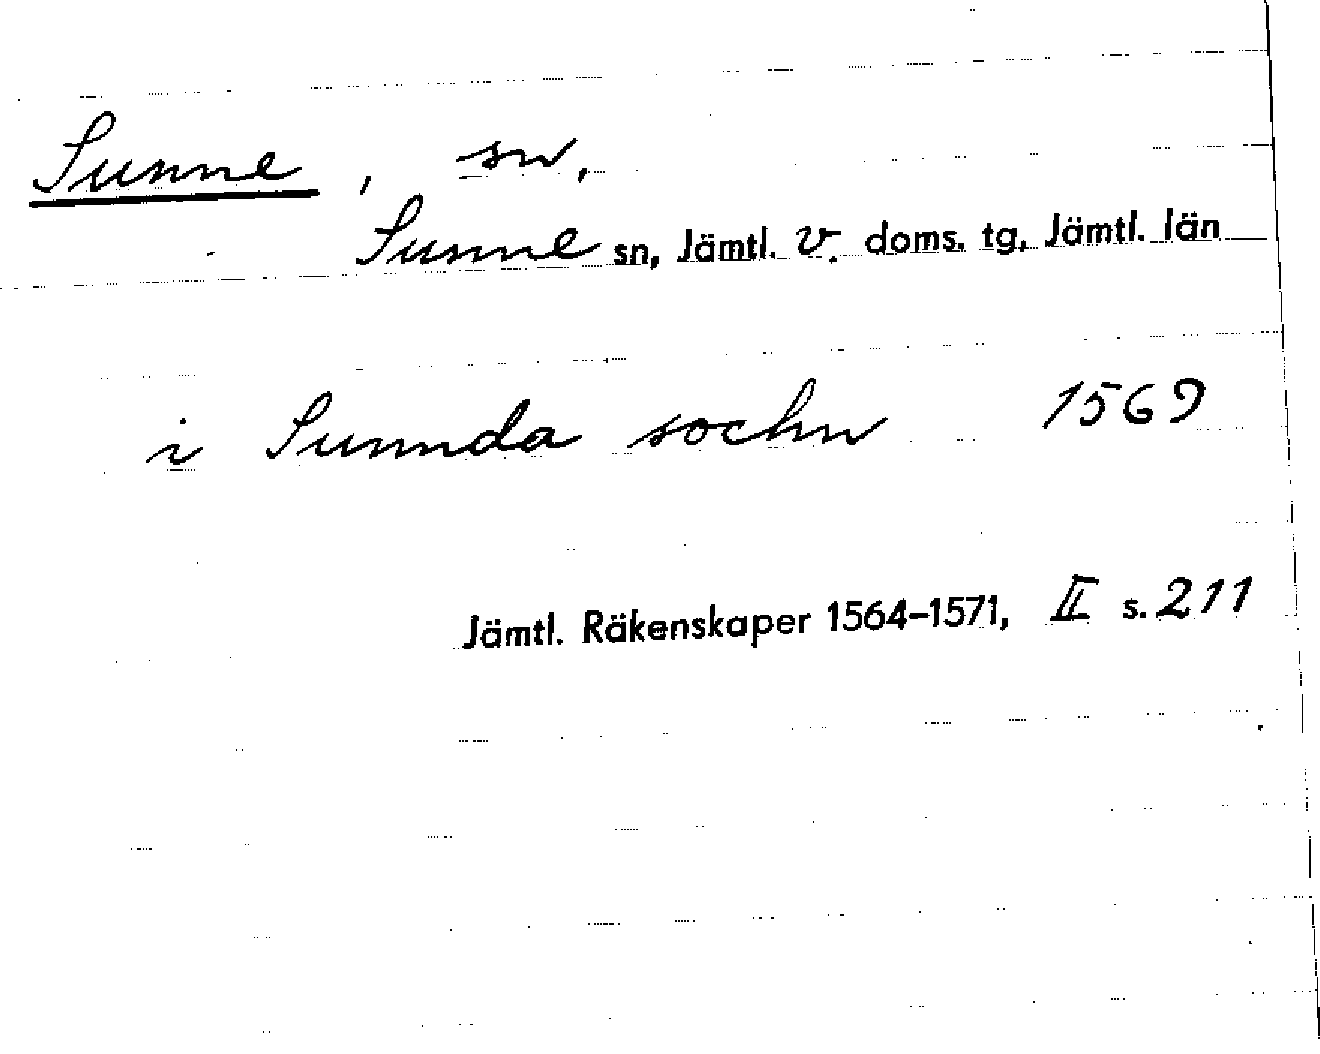 Sunne, sn,
Sunne sn, Jämtl. v. doms. tg, Jämtl. län
i Sunnda sochn 1569
Jämtl. Räkenskaper 1564-1571, II s. 211